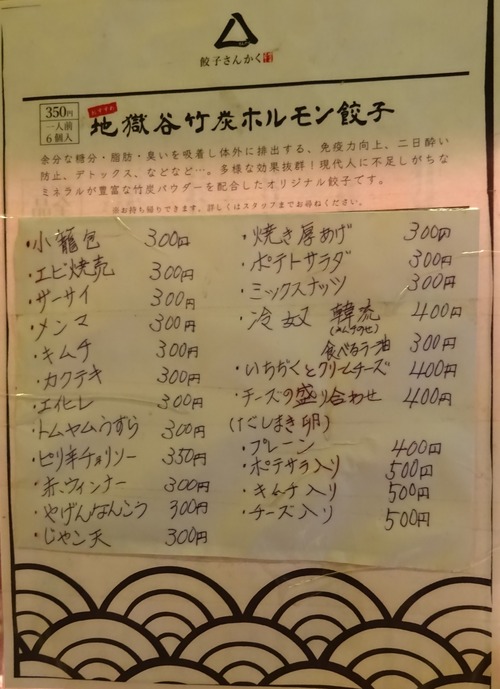 餃子さんかく
350円
一人前
6個入
おすすめ
地獄谷竹炭ホルモン餃子
余分な糖分・脂肪・臭いを吸着し体外に排出する、免疫力向上、二日酔い
防止、デトックス、などなど…。多様な効果抜群！現代人に不足しがちな
ミネラルが豊富な竹炭パウダーを配合したオリジナル餃子です。
※お持ち帰りできます。詳しくはスタッフまでお尋ねください。
・小籠包 300円
・エビ焼売 300円
・ザーサイ 300円
・メンマ 300円
・キムチ 300円
・カクテキ 300円
・エイヒレ 300円
・トムヤムうずら 300円
・ピリ辛チョリソー 350円
・赤ウィンナー 300円
・やげんなんこつ 300円
・じゃこ天 300円
・焼き厚あげ 300円
・ポテトサラダ 300円
・ミックスナッツ 300円
・冷奴 韓流 400円
(キムチのせ)
食べるラー油 300円
・いちぢくとクリームチーズ 400円
・チーズの盛り合わせ 400円
(だしまき卵)
・プレーン 400円
・ポテサラ入り 500円
・キムチ入り 500円
・チーズ入り 500円